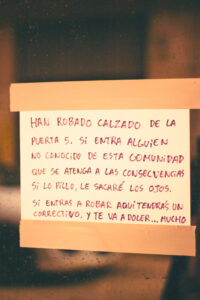 HAN ROBADO CALZADO DE LA
PUERTA 5. SI ENTRA ALGUIEN
NO CONOCIDO DE ESTA COMUNIDAD
QUE SE ATENGA A LAS CONSECUENCIAS
SI LO PILLO, LE SACARÉ LOS OJOS.
SI ENTRAS A ROBAR AQUÍ TENDRÁS UN
CORRECTIVO, Y TE VA A DOLER... MUCHO